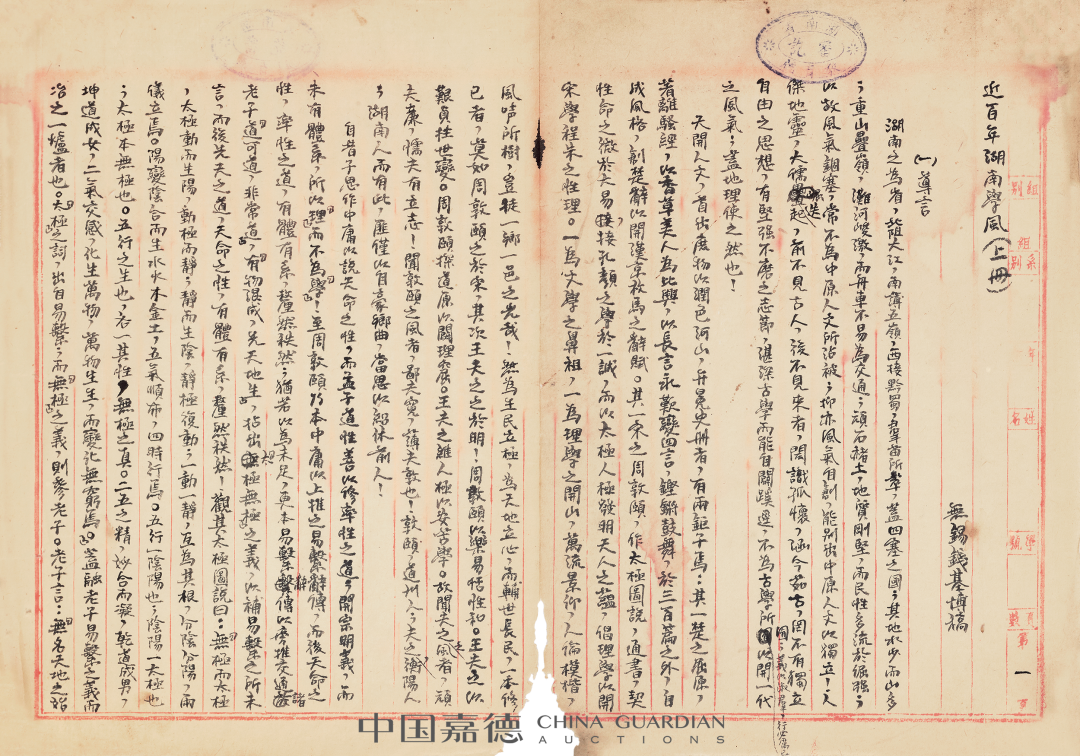 近百年湖南學風(上冊)
無錫錢基博稿
(一)導言
湖南之為省,北阻大江,南薄五嶺,西接黔蜀,羣苗所萃,蓋四塞之國;其地水少而山多
;重山疊嶺,灘河峻激,而舟車不易為交通;頑石赭土,地質剛堅,而民性多流於倔強;
以故風氣錮塞,常不為中原人文所沾被;抑亦風氣自創,能別出中原人文以獨立!人
傑地靈,大儒迭起,前不見古人,後不見來者,閎識孤懷,涵今茹古,罔不有獨立
自由之思想,有堅强不磨之志節,湛深古學而能自闢蹊逕,不為古學所囿以開一代
之風氣;蓋地理使之然也!
天開人文,首出庶物以潤色河山,弁冕史冊者,有兩鉅子焉:其一楚之屈原,
著離騷經,以香草美人為比興,以長言永歎變四言,鏗鏘鼓舞,於三百篇之外,自
成風格,創楚辭以開漢京枚馬之辭賦。其一宋之周敦頤,作太極圖說,通書,契
性命之微於大易,接孔顏之學於一誠,而以太極人極發明天人之蘊,倡理學以開
宋學程朱之性理。一為文學之鼻祖,一為理學之開山,萬流景仰,人倫模楷,
風聲所樹,豈徒一鄉一邑之光哉!然為生民立極,為天地立心,而輔世長民,一本修
己者,莫如周敦頤之於宋,其次王夫之之於明!周敦頤以樂易恬性和,王夫之以
艱貞拄世變。周敦頤探道原以闢理窟。王夫之維人極以安苦學。故聞夫之風者,頑
夫廉,懦夫有立志!聞敦頤之風者,鄙夫寬,薄夫敦也!敦頤,道州人,夫之衡陽人
,湖南人而有此,匪僅以自豪鄉曲,當思以紹休前人!
自昔子思作中庸以說天命之性,而孟子道性善以修率性之道;開宗明義,而
未有體系,所以理而不為學!至周敦頤乃本中庸以上推之易繫辭傳,而後天命之
性,率性之道,有體有系,釐然秩然;猶若以為未足,更本易繫辭傳以旁推交通諸
老子道可道,非常道,有物混成,先天地生,拈出太極無極之義,以補易繫之所未
言,而後先天之道,天命之性,有體有系,釐然秩然!觀其太極圖說曰:無極而太極
,太極動而生陽,動極而靜;靜而生陰,靜極復動;一動一靜,互為其根,分陰分陽,兩
儀立焉。陽變陰合而生水火木金土,五氣順布,四時行焉。五行一陰陽也;陰陽一太極也
;太極本無極也。五行之生也,各一其性,無極之真,二五之精,妙合而凝,乾道成男,
坤道成女,二氣交感,化生萬物,萬物生生,而變化無窮焉。蓋融老子易繫之義而
冶之一爐者也。太極之詞,出自易繫;而無極之義,則參老子。老子言:無名天地之始
組別
系
組別
年
姓名
學號
頁數
第一頁
中国嘉德
CHINA GUARDIAN
AUCTIONS